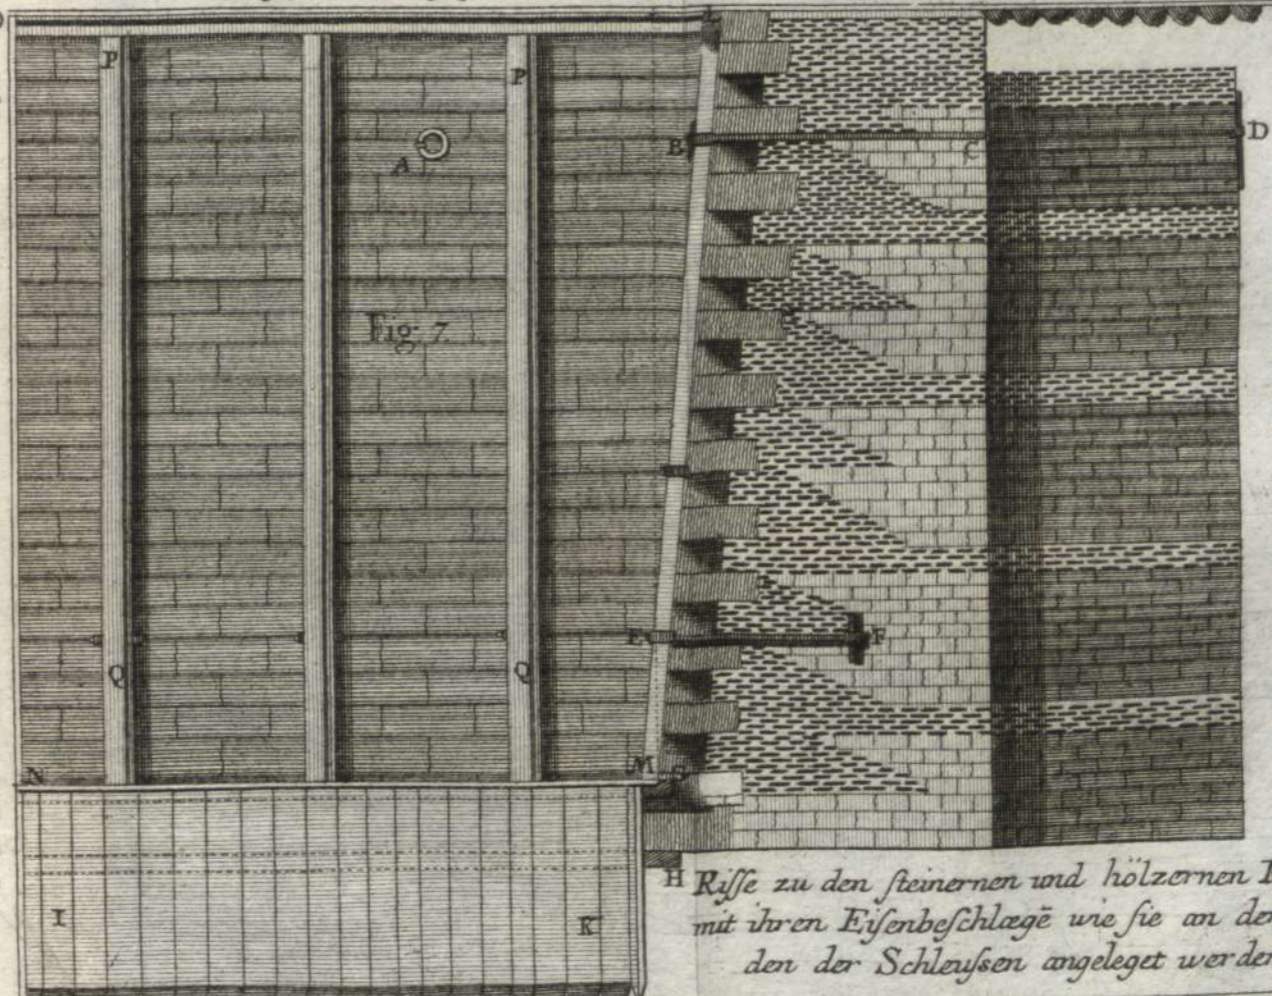 L
P
P
A
B
C
D
Fig. 7.
E
F
Q
Q
N
M
G
H
Riſſe zu den ſteinernen und hölzernen
mit ihren Eiſenbeſchlægē wie ſie an de
den der Schleuſsen angeleget werde
I
K